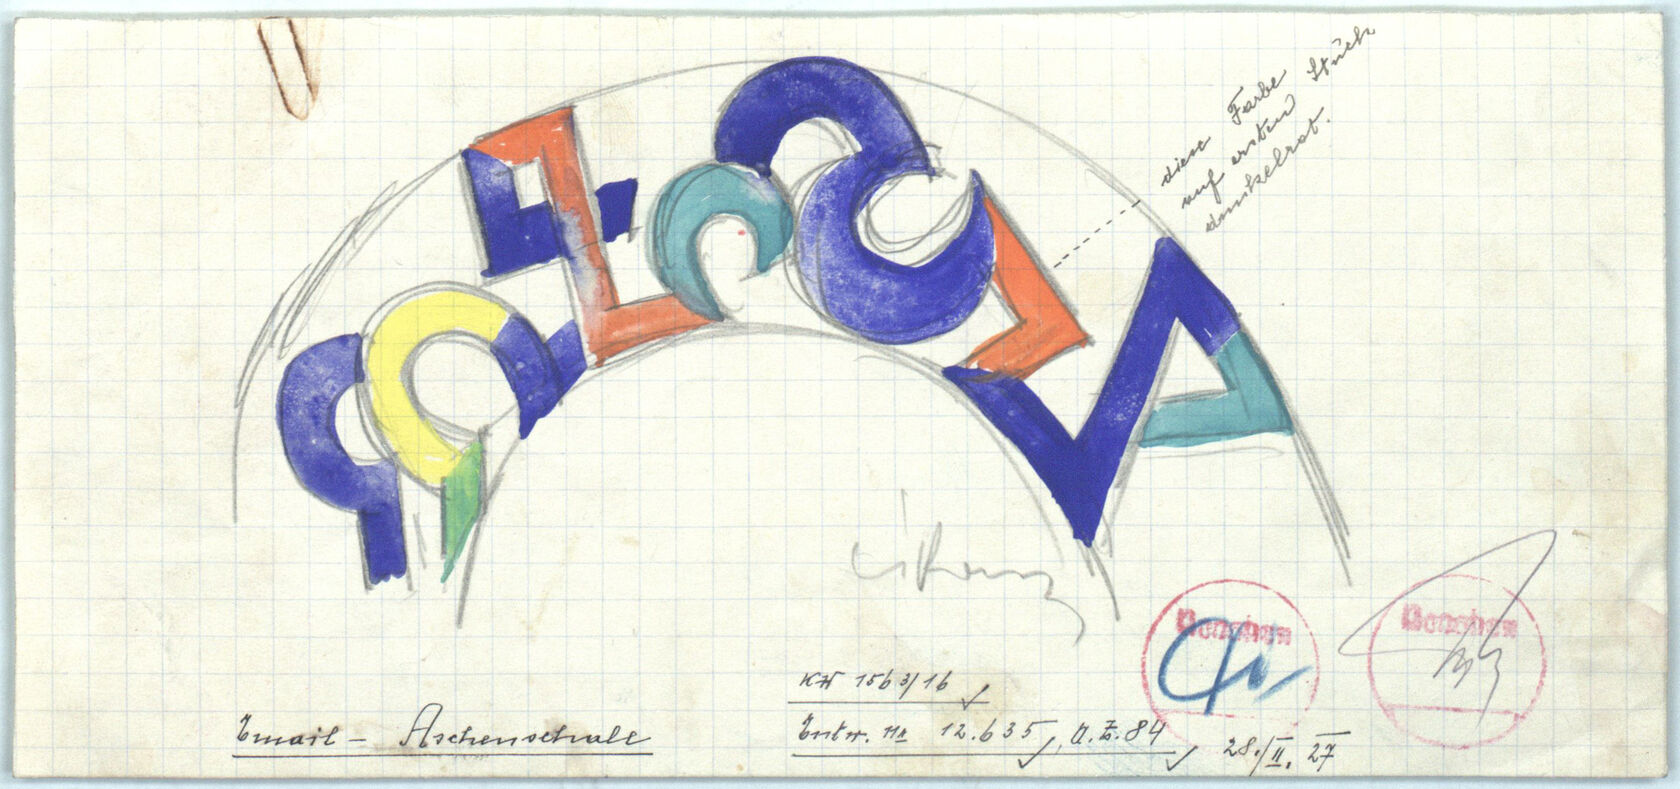 diese Farbe Stück
auf ersten
dunkelrot.
KH 1563/16
Email – Aschenschale
Entw. Nr 12.635, A.Z. 84
28./II. 27
Gesehen
Gesehen